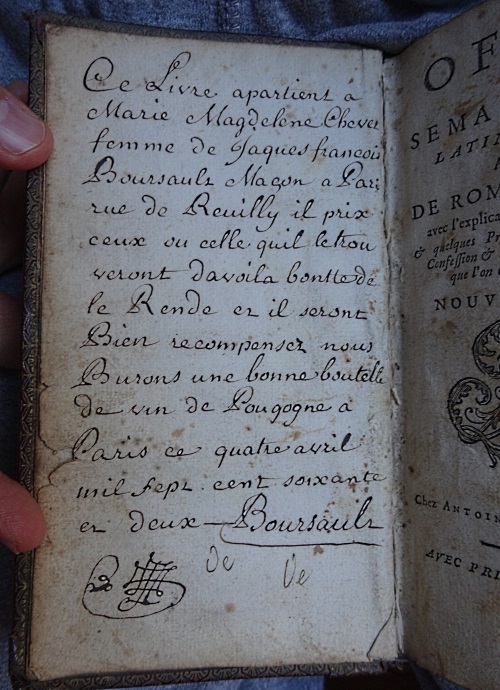 Ce Livre apartient a
Marie Magdelene Chever
femme de Jaques francois
Boursault Maçon a Paris
rue de Reuilly il prix
ceux ou celle quil letrou
veront davoila bontte de
le Rende et il seront
Bien recompensez nous
Burons une bonne boutelle
de vin de Bougogne a
Paris ce quatre avril
mil sept cent soixante
et deux — Boursault
de Ve
OF
SEMA
LATIN
DE ROM
avec l'explica
& quelques Pr
Confession &
que l'on
NOUV
Chez ANTOIN
AVEC PRI